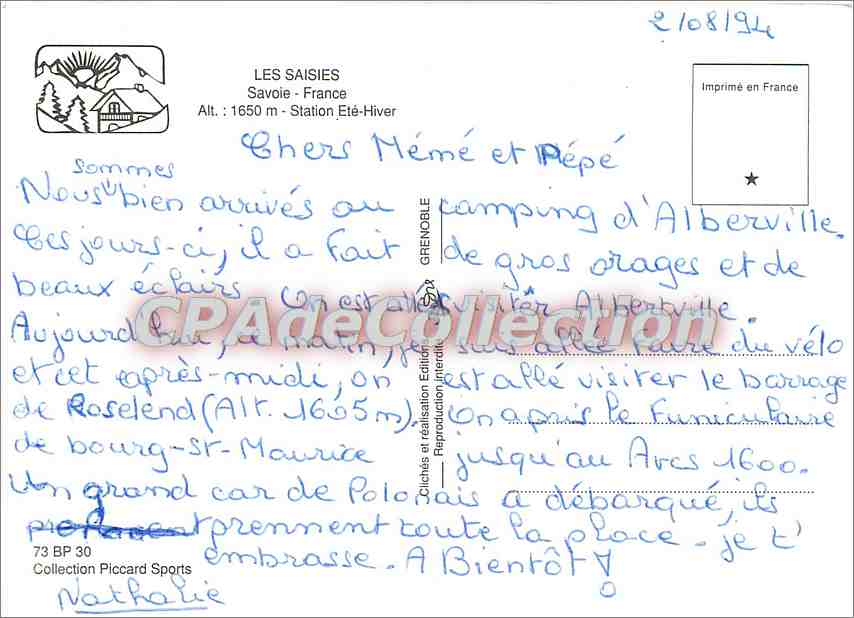 2/08/94
LES SAISIES
Savoie - France
Alt. : 1650 m - Station Eté-Hiver
Imprimé en France
Chers Mémé et Pépé
sommes
Nous bien arrivés au camping d'Alberville.
Ces jours-ci, il a fait de gros orages et de
beaux éclairs on est allé visiter Albertville.
Aujourd'hui, ce matin, je suis allée faire du vélo
et cet après-midi, on est allé visiter le barrage
de Roselend (Alt. 1605m). on a pris le Funiculaire
de bourg-St-Maurice jusqu'au Arcs 1600.
Un grand car de Polonais a débarqué, ils
prennent toute la place - je t'
embrasse. A Bientôt !
Nathalie
73 BP 30
Collection Piccard Sports
Clichés et réalisation Edition GRENOBLE
Reproduction interdite
CPAdeCollection